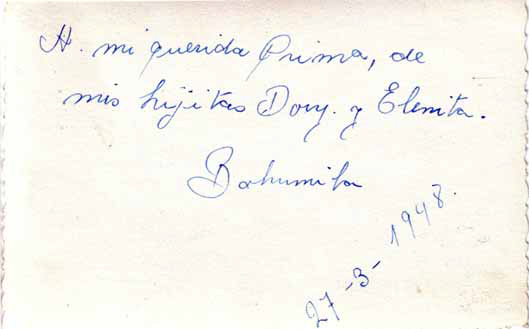 A. mi querida Prima, de
mis hijitas Dory. y Elenita.
Bohumila
27-3-1948.